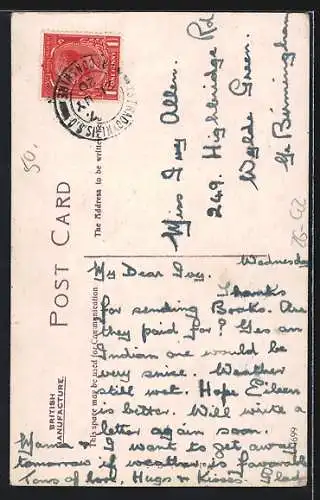 POST CARD
BRITISH
MANUFACTURE.
This space may be used for Communication
The Address to be written
Miss Ivy Allen.
249. Highbridge Rd
Wylde Green.
Birmingham
Wednesday
My Dear Ivy.
Thanks
for sending Books. Are
they paid for? Yes an
Indian one would be
very nice. Weather
still wet. Hope Eileen
is better. Will write a
letter again soon.
Mamie & I want to get away
tomorrow if weather is favourable
Tons of love, Hugs & Kisses.
50.